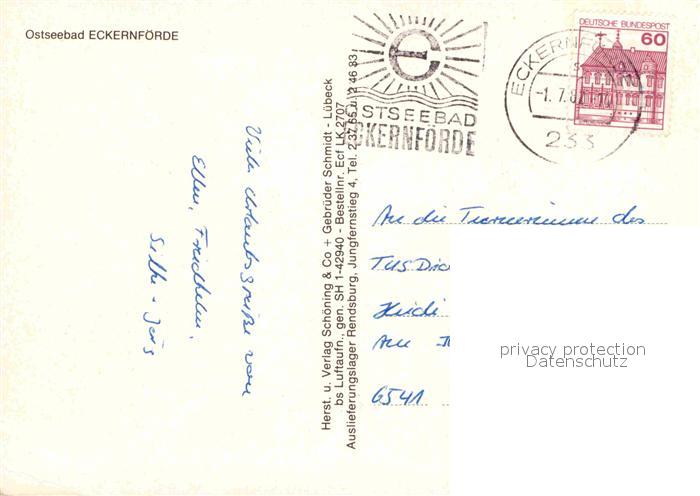 Ostseebad ECKERNFÖRDE
OSTSEEBAD
ECKERNFÖRDE
ECKERNFÖRDE
-1.7.8
233
DEUTSCHE BUNDESPOST
60
Viele Urlaubsgrüße von
Ellen, Friedhelm,
Silke + Jörg
Herst. u. Verlag Schöning & Co + Gebrüder Schmidt - Lübeck
bs Luftaufn., gen. SH 1-42940 - Bestellnr. Ecf LK 2707
Auslieferungslager Rendsburg, Jungfernstieg 4, Tel. 2 37 65 u. 2 46 83
An die Turnerinnen des
TUS
Heidi
Am
6541
privacy protection
Datenschutz